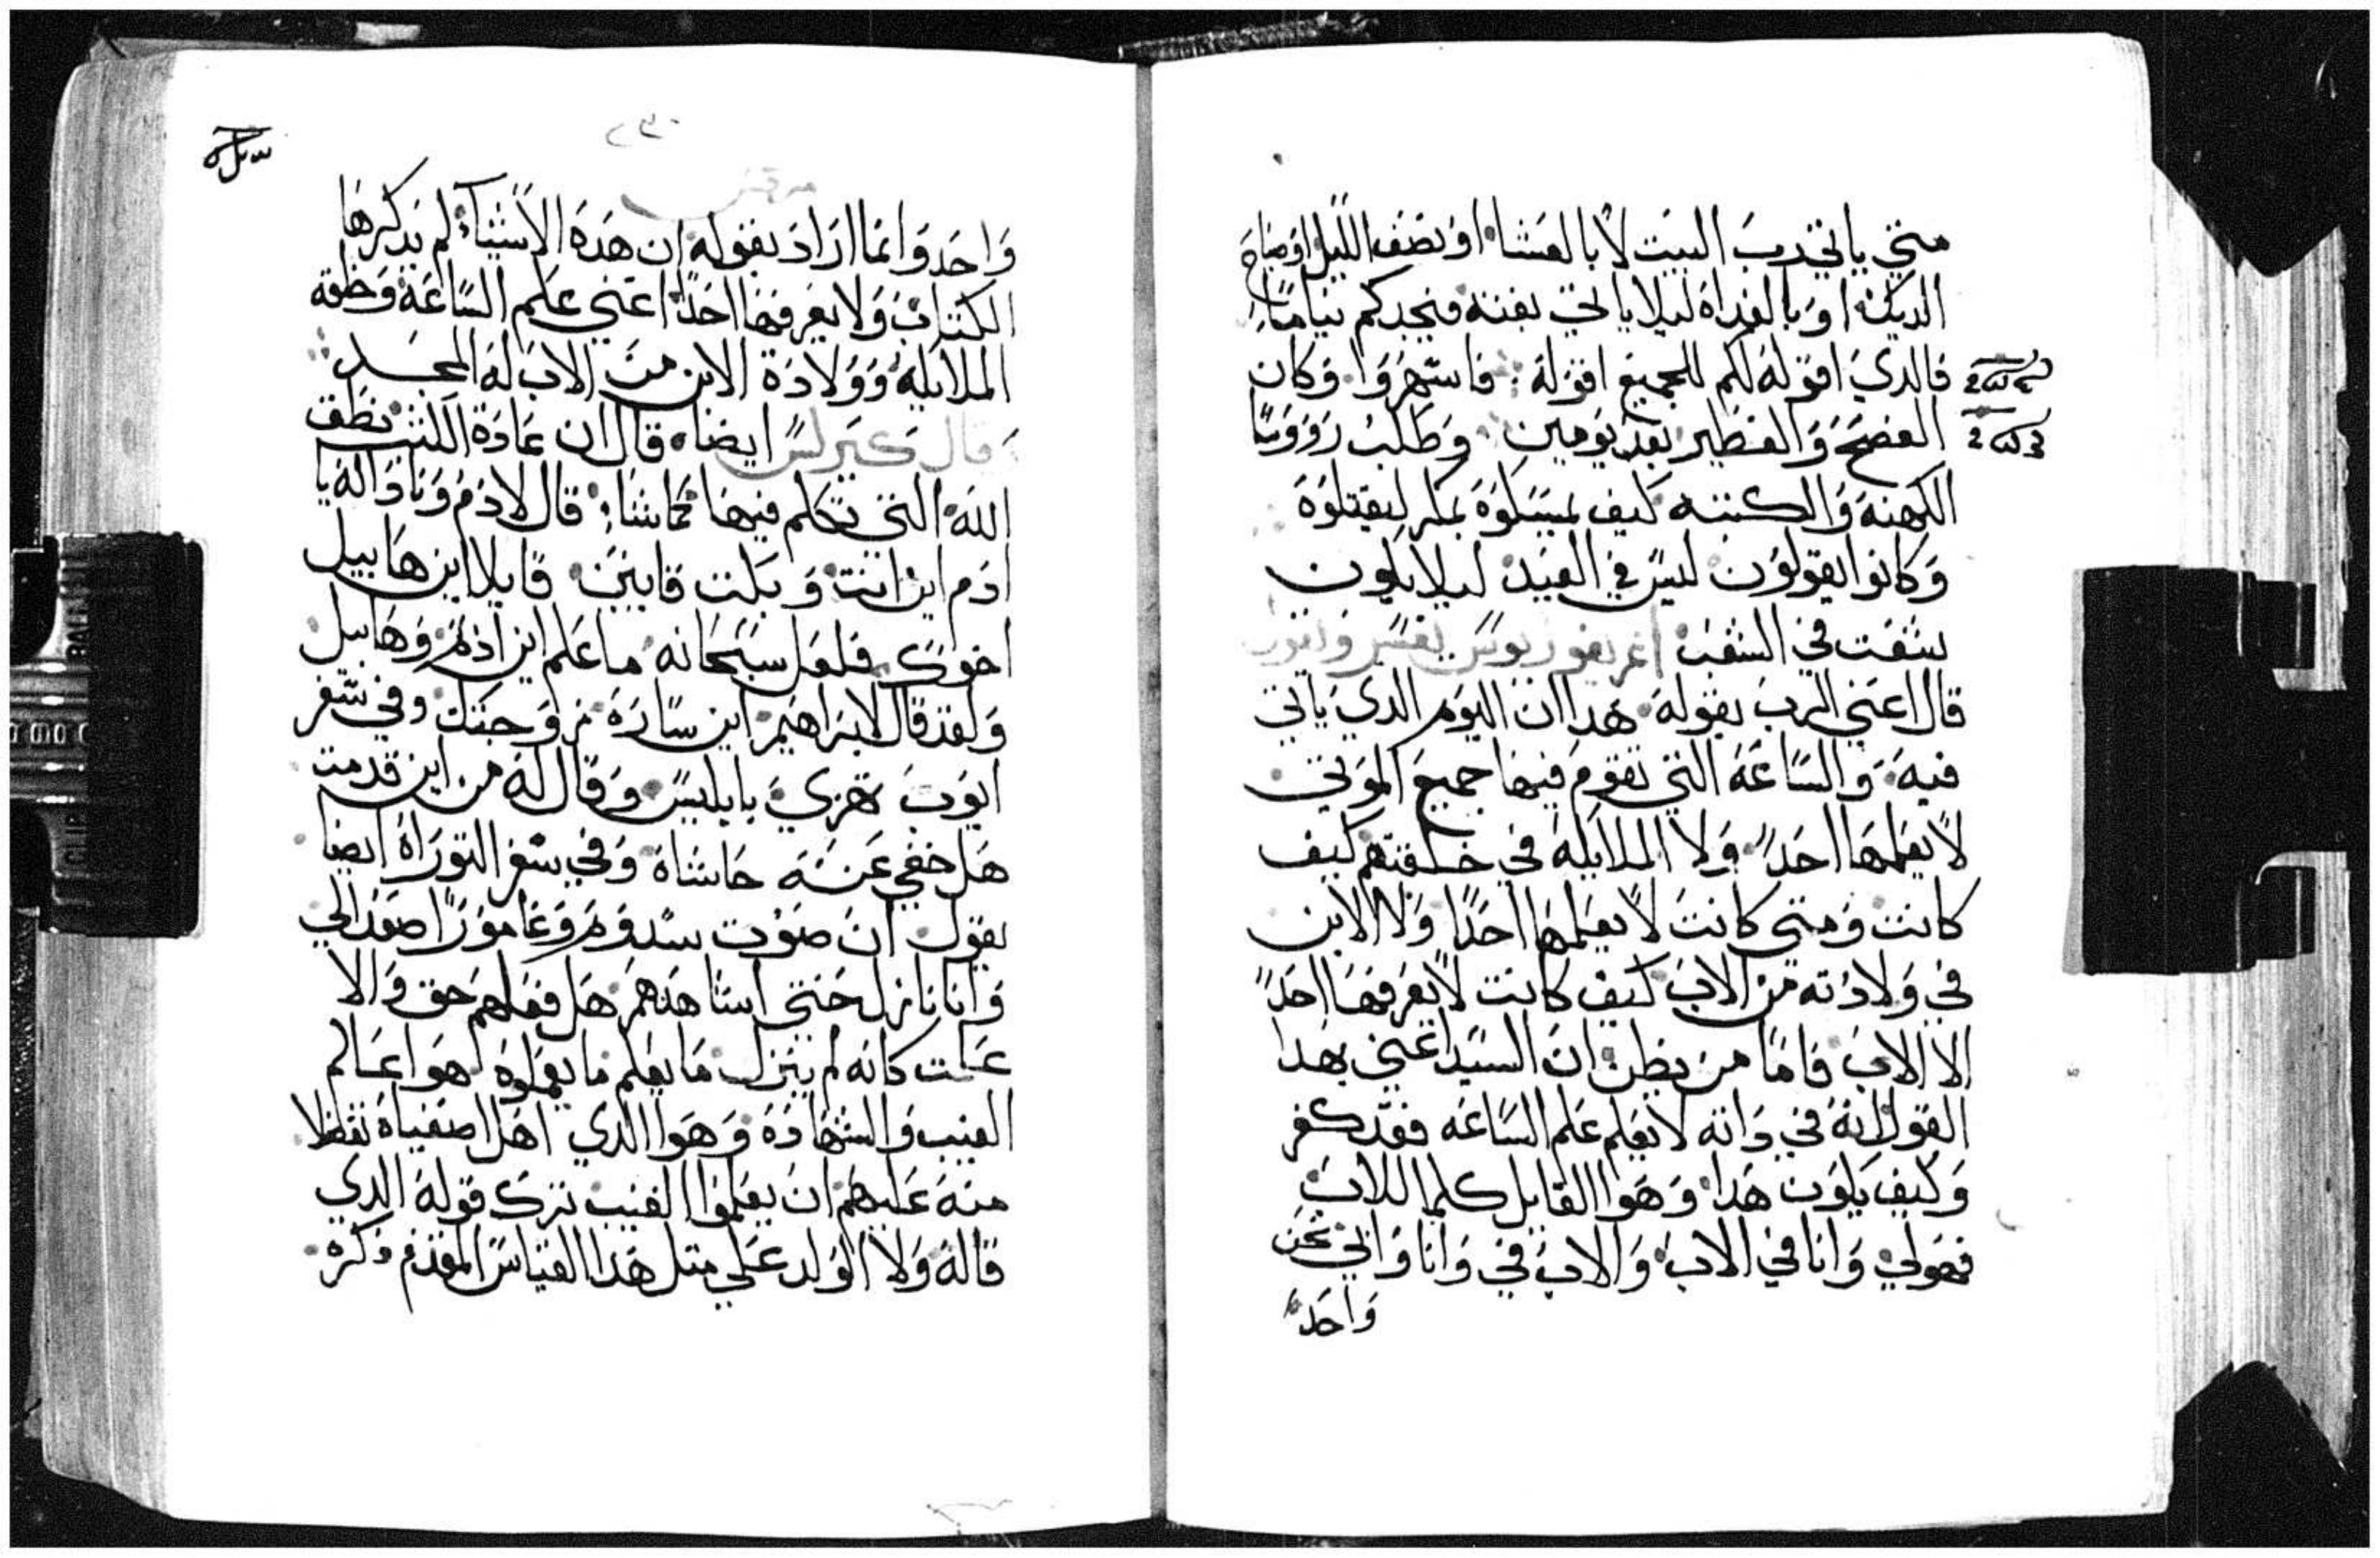 متي ياتي رب البيت لا بالعشا او نصف الليل او صياح
الديك او بالغداه ليلا ياتي بغتة فيجدكم نيامًا
فالدي اقوله لكم للجميع اقوله فاسهروا وكان
الفصح والفطير بعد يومين وطلب رووسا
الكهنة والكتبه كيف يمسكوه بمكر ليقتلوه
وكانوا يقولون ليس في العيد ليلا يكون
شغت في الشغب اغريغوريوس يفسر ويقول
قال اعني الرب بقوله هدا ان اليوم الدي ياتي
فيه والساعة التي تقوم فيها جميع الموتي
لا يعلمها احدًا ولا الملايكه في خلقتهم كيف
كانت ومتي كانت لا يعلمها احدًا ولا الابن
في ولادته من الاب كيف كانت لا يعرفها احدًا
الا الاب فاما من يظن ان السيد اعني بهدا
القول انه في داته لا يعلم علم الساعه فقد كفر
وكيف يكون هدا وهوا القايل كلما للاب
فهو لي وانا في الاب والاب في وانا وابي نحن
واحد
٢٣٠
مرقس
واحد وانما اراد بقوله ان هده الاشيآء لم يدكرها
الكتاب ولا يعرفها احدًا اعني علم الساعة وخلقة
الملايكه وولادة الابن من الاب له المجد
وقال كيرلس ايضا قال ان عادة الكتب تطق
الله التي تكلم فيها كما شاء قال لادم وناداه يا
ادم اين انت وبكت قايين قايلا اين هابيل
اخوك فلعل سبحانه ما علم اين ادم وهابيل
ولقد قال لابراهيم اين ساره زوجتك وفي سفر
ايوب تهزي بابليس وقال له من اين قدمت
هل خفي عنه حاشاه وفي سفر التوراة ايضا
يقول ان صوت سدوم وغامورا صعد الي
وانا نازل حتي اشاهدهم هل فعلهم حق والا
علمت كانه لم ينزل ما يعلم ما يعملوه لهوا عالم
الغيب والشهادة وهوا الدي اهل اصفياه تفضلا
منه عليهم ان يعلموا الغيب ترك قوله الدي
قاله ولا الولد علي متل هدا القياس المقدم دكره